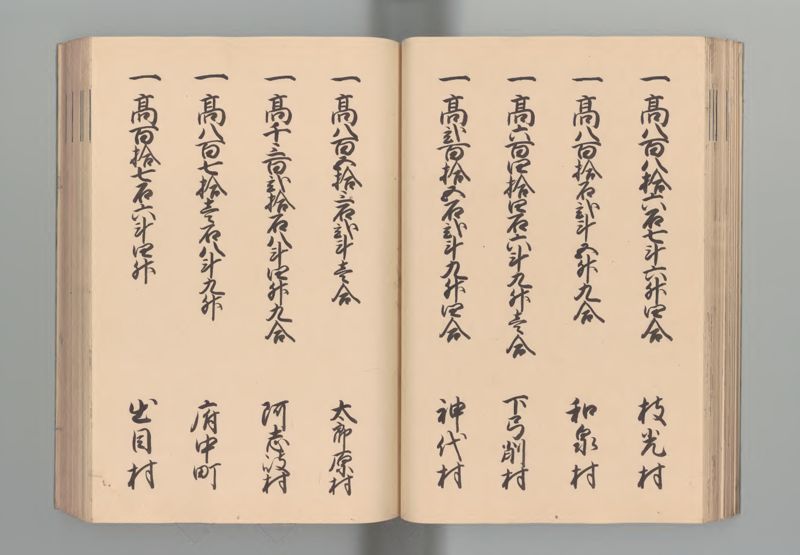 一 高八百八拾六石七斗六升四合 枝光村
一 高八百拾石弐斗五升九合 和泉村
一 高六百四拾四石六斗九升壱合 下弓削村
一 高弐百拾五石弐斗九升四合 神代村
一 高八百五拾三石弐斗壱合 太郎原村
一 高千三百弐拾石八斗四升九合 阿志岐村
一 高八百七拾壱石八斗九升 府中町
一 高百拾七石六斗四升 出目村